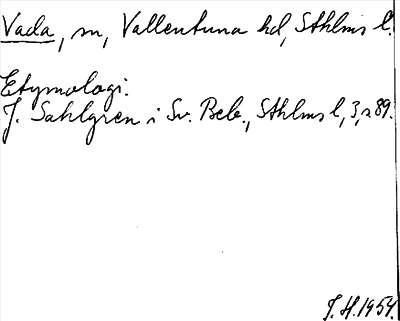 Vada, sn, Vallentuna hd, Sthlms l.
Etymologi:
J. Sahlgren i Sv. Beb., Sthlms l, 3, s 89.
J. H. 1954.